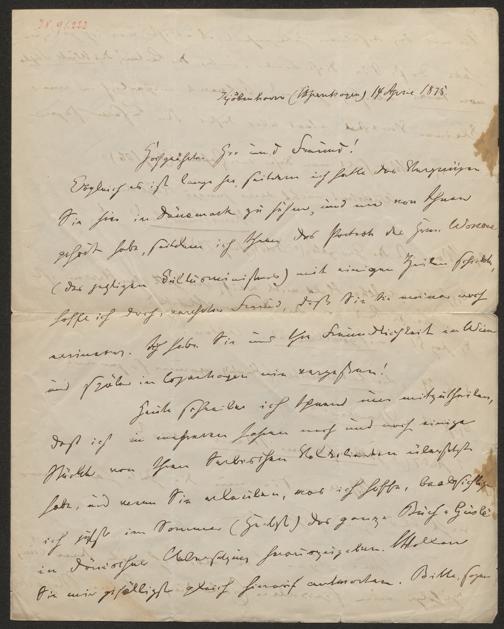 38.9/222
Kjöbenhavn (Copenhagen) 14 April 1875
Hochgeehrter Herr und Freund!
Obgleich es ist lange her, seitdem ich hatte das Vergnügen
Sie hier in Dänemark zu sehen, und nur von Ihnen
gehört habe, seitdem ich Ihnen das Portrait des Herrn Worsaae
(des jetzigen Cultusministers) mit einigen Zeilen schickte,
hoffe ich doch, verehrter Freund, daß Sie sich meiner noch
erinnern. Ich habe Sie und Ihre Freundlichkeit in Wien
und später in Copenhagen nie vergessen!
Heute schreibe ich Ihnen um mitzutheilen,
daß ich in mehreren Jahren nach und nach einige
Stücke von Ihren Serbischen übersetzt
habe, und wenn Sie erlauben, was ich hoffe, beabsichtige
ich jetzt im Sommer (Herbst) das ganze Buch: Gusle
in Dänischer Übersetzung herauszugeben. Wollen
Sie mir gefälligst gleich hierauf antworten. Bitte, sagen